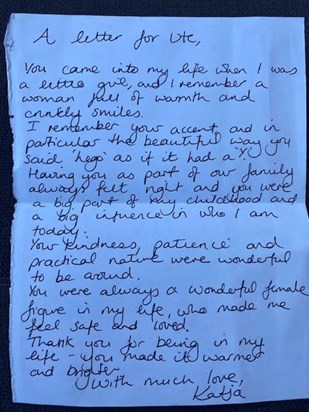 A letter for Ute,
You came into my life when I was
a little girl, and I remember a
woman full of warmth and
crinkly smiles.
I remember your accent and in
particular the beautiful way you
said 'lego' as if it had a 'X'.
Having you as part of our family
always felt right and you were
a big part of my childhood and
a big influence in who I am
today.
Your kindness, patience and
practical nature were wonderful
to be around.
You were always a wonderful female
figure in my life, who made me
feel safe and loved.
Thank you for being in my
life - you made it warmer
and brighter
With much love,
Katja